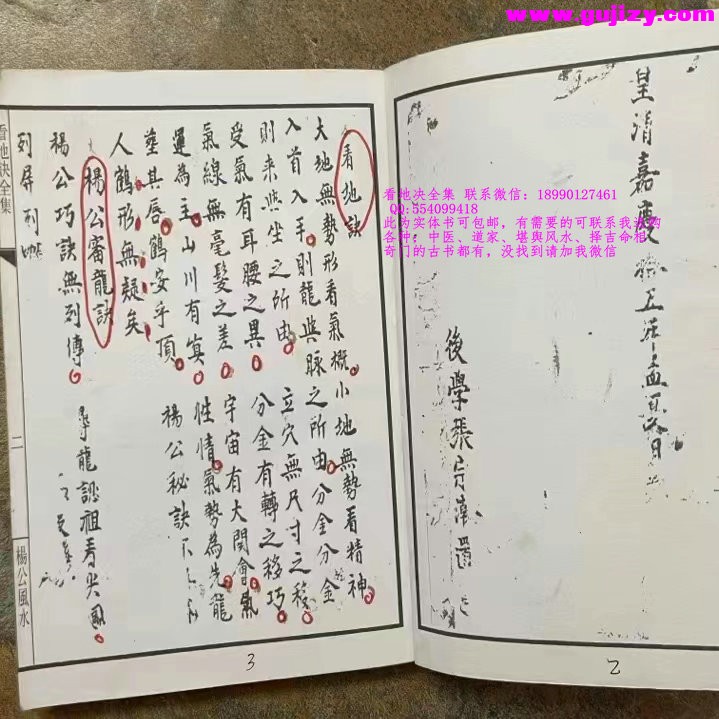 www.gujizy.com
皇清嘉慶拾五年孟夏月
後學張
2
看地决全集 联系微信：18990127461
QQ:554099418
此为实体书可包邮，有需要的可联系我
各种：中医、道家、堪舆风水、择吉命相
奇门的古书都有，没找到请加我微信
看地訣
大地無勢形看氣概小地無勢看精神
入首入手則龍與脉之所由分金分金
則来與坐之所由立穴無尺寸之移
受氣有耳腰之異分金有轉之移巧
氣線無毫髮之差宇宙有大開會氣
運為主山川有眞性情氣勢為先龍
葬其唇鶴安乎頂楊公秘訣
人鶴形無疑矣
楊公審龍訣
楊公巧訣無列傳尋龍認祖看尖圓
列屏列
看地决全集
二
楊公風水
3